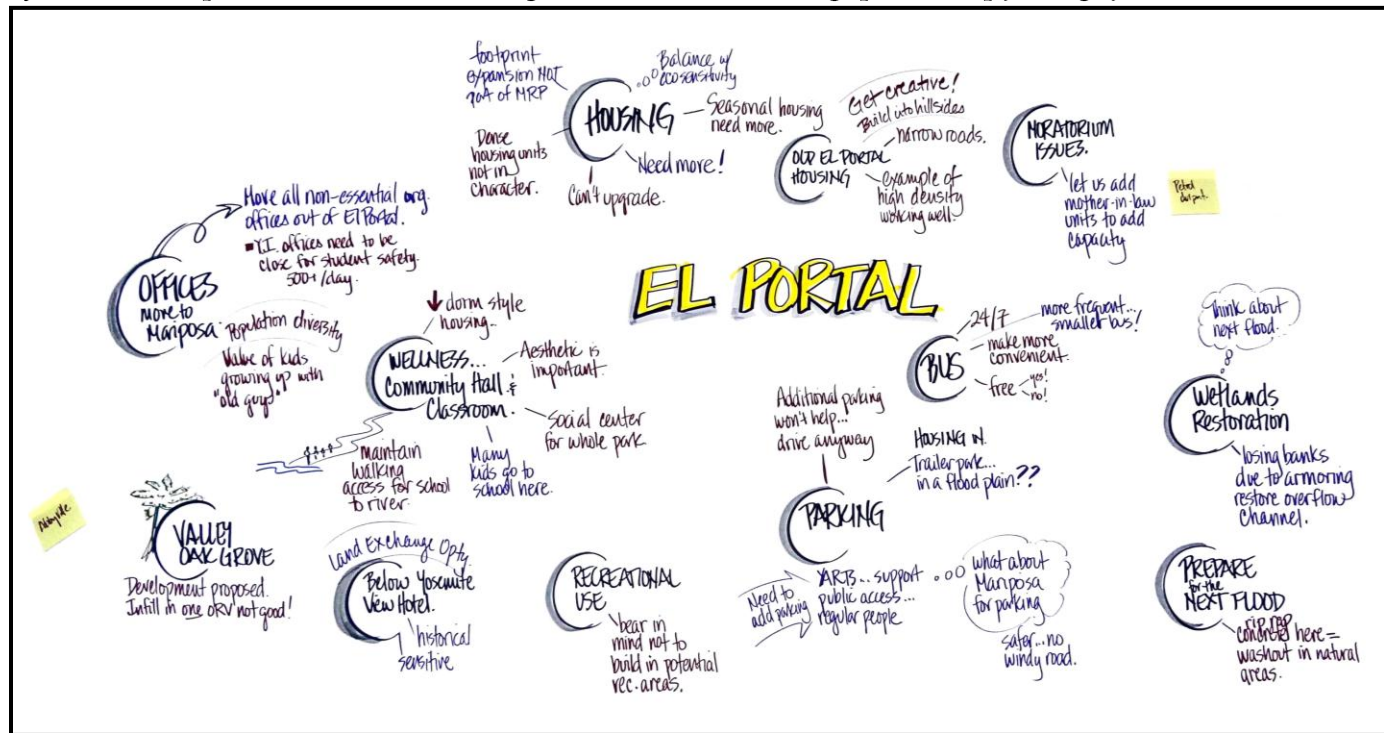 EL PORTAL
footprint
expansion NOT
part of MRP
Balance w/
ecosensitivity
HOUSING
Seasonal housing
need more.
Dense
housing units
not in
character.
Can't upgrade.
Need more!
Get creative!
Build into hillsides
OLD EL PORTAL
HOUSING
narrow roads.
example of
high density
working well.
MORATORIUM
ISSUES.
let us add
mother-in-law
units to add
capacity
Move all non-essential org.
offices out of El Portal.
Y.I. offices need to be
close for student safety.
500+/day.
OFFICES
move to
Mariposa
Population diversity
Value of kids
growing up with
"old guys"
dorm style
housing..
WELLNESS...
Community Hall &
Classroom.
Aesthetic is
important.
Social center
for whole park
Many
kids go to
school here.
maintain
walking
access for school
to river.
24/7
more frequent...
smaller bus!
BUS
make more
convenient.
free
yes!
no!
Think about
next flood.
Wetlands
Restoration
losing banks
due to armoring
restore overflow
channel.
Additional parking
won't help...
drive anyway
HOUSING IN
Trailer park...
in a flood plain??
PARKING
Need to
add parking
YARTS...support
public access...
regular people
what about
Mariposa
for parking
safer...no
windy road.
VALLEY
OAK GROVE
Development proposed.
Infill in one ORV not good!
Land Exchange Opty.
Below Yosemite
View Hotel.
historical
sensitive
RECREATIONAL
USE
bear in
mind not to
build in potential
rec. areas.
PREPARE
for the
NEXT FLOOD
rip rap
concrete here =
washout in natural
areas.